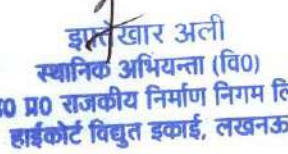 खार अली
स्थानिक अभियन्ता (वि0)
0 प्र0 राजकीय निर्माण निगम लि
हाईकोर्ट विद्युत इकाई, लखनऊ